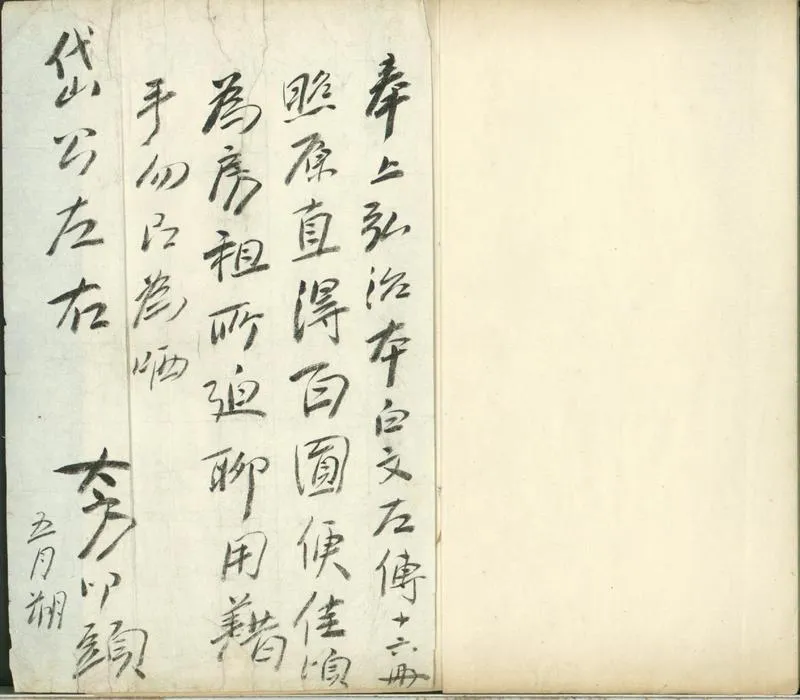 奉上弘治本白文左傳十六冊
照原直得百圓便佳頃
為房租所迫聊用藉
手勿以為哂
岱山公左右
大 叩頭
五月朔